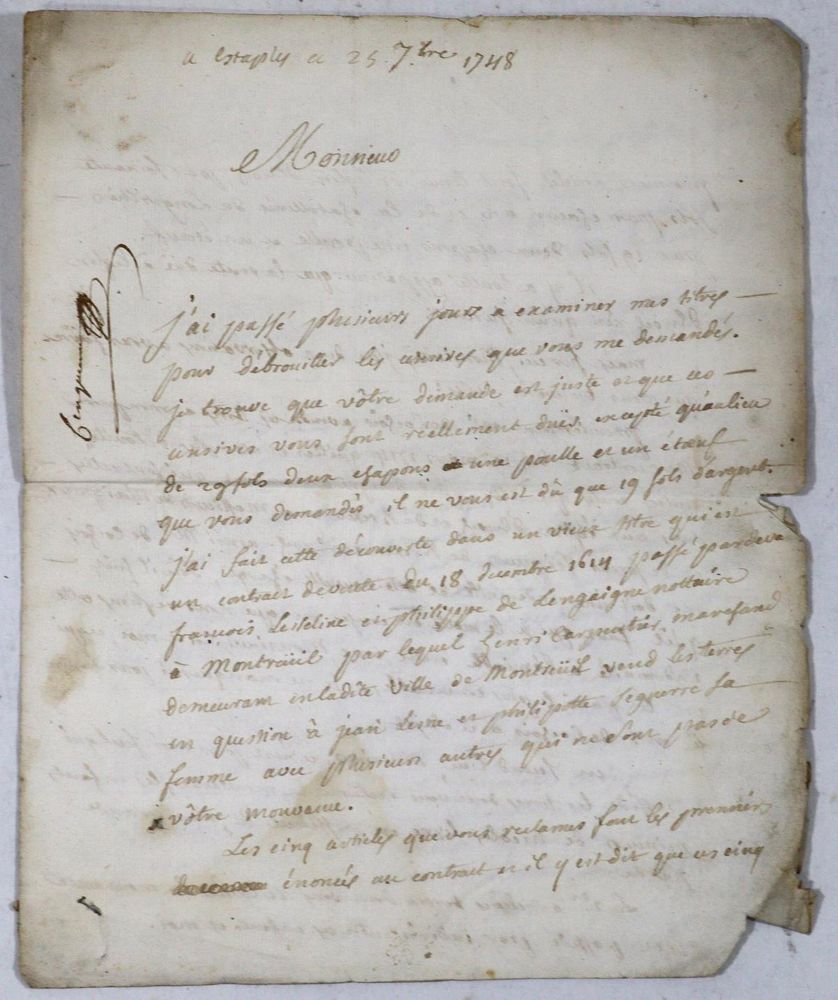 a Etaples ce 25 7.bre 1748
Monsieur
j'ai passé plusieurs jours a examiner mes titres
pour debrouiller les censives que vous me demandés.
je trouve que vôtre demande est juste et que ces
censives vous sont reellement duës excepté qu'aulieu
de 29 sols deux chapons et une poulle et un étœuf
que vous demandés il ne vous est dû que 19 sols d'argent.
j'ai fait cette découverte dans un vieux titre qui est
un contrat de vente du 18 decembre 1614 passé pardeva
francois Lesseline et philippe de Lengaigne nottaire
à Montreüil par lequel henri Carpentier marchand
demeurant en ladite ville de Montreüil vend les terres
en question à jean Lesne et philipotte Seguerre sa
femme avec plusieurs autres qui ne sont pas de
vôtre mouvance.
Les cinq articles que vous reclames font les premiers
énoncés au contrat et il y est dit que ces cinq